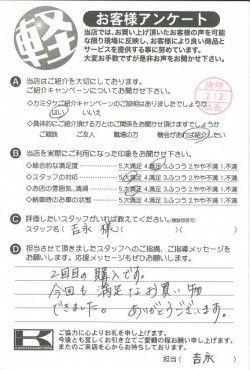 軽
お客様アンケート
当店では、お買い上げ頂いたお客様の声を可能
な限り現場に反映し、お客様により良い商品と
サービスを提供する事に努めています。
大変お手数ですが是非お声をお聞かせ下さい。
A 当店はご紹介を大切にしております。
ご紹介キャンペーンについてお聞かせ下さい。
◇カミタケご紹介キャンペーンのご説明はありましたでしょうか
はい いいえ
◇具体的にご紹介頂ける方とのご関係をお聞かせ頂けますでしょうか
ご親族 ご友人 職場の方 機会があれば紹介したい
B 当店を実際にご利用になった印象をお聞かせ下さい。
◇総合的な満足度 5.大満足 4.満足 3.ふつう 2.やや不満 1.不満
◇スタッフの対応 5.大満足 4.満足 3.ふつう 2.やや不満 1.不満
◇お店の雰囲気、清掃 5.大満足 4.満足 3.ふつう 2.やや不満 1.不満
◇納車時のお車の状態 5.大満足 4.満足 3.ふつう 2.やや不満 1.不満
C 評価したいスタッフがいれば教えてください。(複数回答可)
スタッフ名( 吉永 様 )( )( )
D 担当させて頂きましたスタッフへのご指摘、ご指導メッセージを
お願いします。応援メッセージもぜひお願いします。
2回目の購入です。
今回も満足なお買い物
できました。ありがとうございます。
K
ご協力に心よりお礼を申し上げます。
今後とも宜しくお引き立てご愛顧の程お願い申し上げます。
またのご来店を心からお待ちしております。
担当( 吉永 )